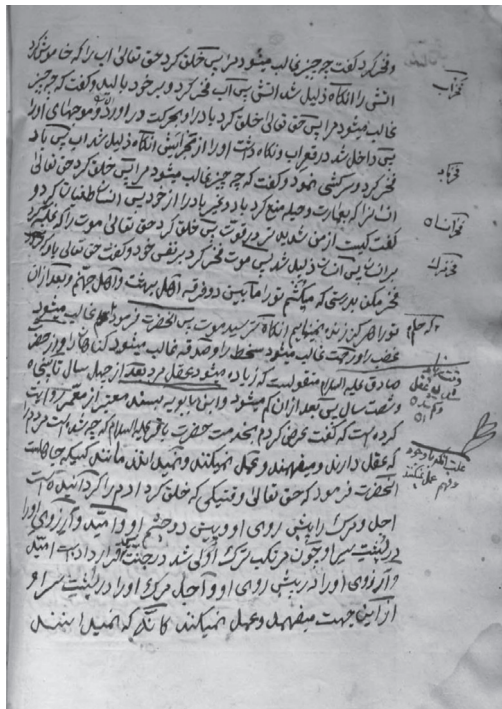 و فخر کرد گفت چه چیز غالب میشود مرا پس خلق کرد حق تعالی آب را که خاموش کرد
آتش را آنگاه ذلیل شد آتش پس آب فخر کرد و بر خود بالید و گفت که چه چیز
غالب میشود مرا پس حق تعالی خلق کرد باد را و بحرکت در آورد موجهای او را
پس داخل شد در قعر آب و نگاه داشت او را از تحرک پس آنگاه ذلیل شد آب پس باد
فخر کرد و سرکشی نمود و گفت که چه چیز غالب میشود مرا پس خلق کرد حق تعالی
انسان را که بعمارت و حیله منع کرد باد و غیر باد را از خود پس انسان طغیان کرد و
گفت کیست از من شدیدتر در قوت پس خلق کرد حق تعالی موت را که غلبه کرد
بر انسان پس انسان ذلیل شد پس موت فخر کرد بر نفس خود و گفت حق تعالی باو که
فخر مکن بدرستی که میکشم تو را مابین دو فرقه اهل بهشت و اهل جهنم و بعد از آن
تو را هرگز زنده نمینمایم آنگاه ترسید موت پس آنحضرت فرمود که حلم غالب میشود
غضب را و رحمت غالب میشود سخط را و صدقه غالب میشود گناهان را و از حضرت
صادق علیه السلام منقولست که زیاده میشود عقل مرد بعد از چهل سال تا پنجاه
و شصت سال پس بعد از آن کم میشود و ابن بابویه بسند معتبر از معمر روایت
کرده است که گفت عرض کردم بخدمت حضرت باقر علیه السلام که چه شده است مردم را
که عقل دارند و میفهمند و عمل نمیکنند و نمیدانند مانند کسیکه جاهلست
آنحضرت فرمود که حق تعالی وقتیکه خلق کرد آدم را گردانیده است
اجل و مرگ را پیش روی او و پیش دو چشم او و امید و آرزوی او را
در پشت سر او چون مرتکب ترک اولی شد در جنت قرار داده است امید
و آرزوی او را در پیش روی او و اجل و مرگ او را در پشت سر او
از این جهت میفهمند و عمل نمیکنند کانکه نمیدانند
فخر آب
فخر باد
فخر انسان
فخر مرگ